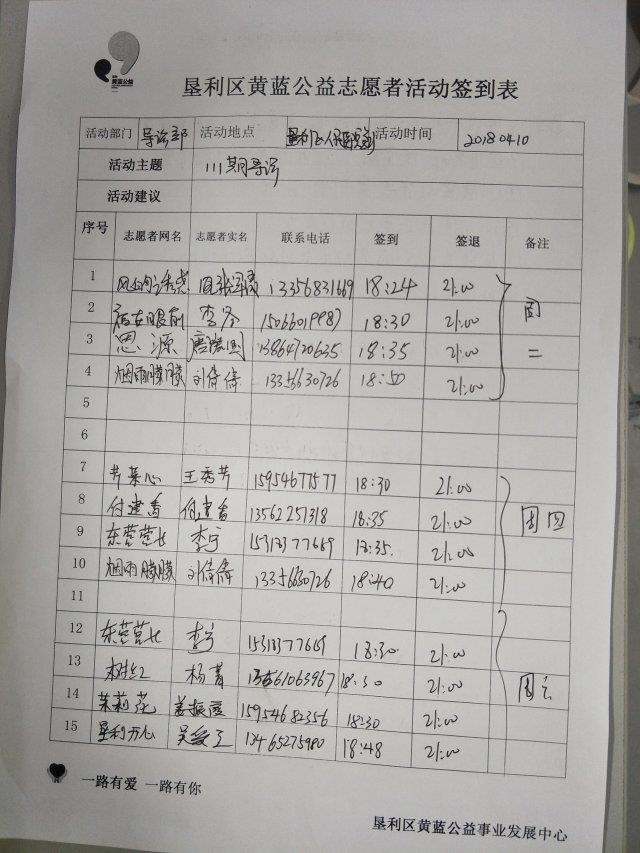 黄蓝公益
垦利区黄蓝公益志愿者活动签到表
活动部门 导诊部 活动地点 活动时间 20180410
活动主题 111期导诊
活动建议
序号 志愿者网名 志愿者实名 联系电话 签到 签退 备注
1 13356831669 18:24 21:00
2 近在眼前 李冬 15066019987 18:30 21:00 周二
3 思源 13864720635 18:35 21:00
4 烟雨朦朦 刘倩倩 13356630726 18:50 21:00
5
6
7 芳菜心 王秀芳 15954677577 18:30 21:00
8 付建香 付建香 13562257318 18:35 21:00 周四
9 东营营长 李宁 15313377669 18:35. 21:00
10 烟雨朦朦 刘倩倩 13356630726 18:40 21:00
11
12 东营营长 李宁 15313377669 18:30 21:00
13 杨菁 18:30 21:00 周六
14 茉莉花 姜振 15954682356 18:30 21:00
15 垦利开心 13465275980 18:48 21:00
一路有爱 一路有你
垦利区黄蓝公益事业发展中心